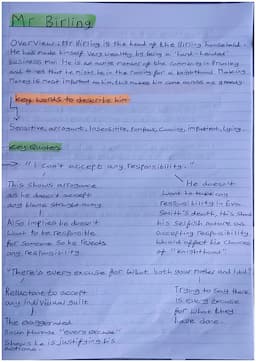 Mr Birling
Overview: Mr Birling is the head of the Birling household.
He has made himself very wealthy by being a "hard-headed"
business man. He is an active member of the community in Brumley
and thinks that he might be in the running for a knighthood. Making
money is most important to him, this makes him come across as greedy.
Key words to describe him
Sensitive, arrogant, insensitive, pompous, cunning, impatient, lying.
Key Quotes
"I can't accept any responsibility."
This shows arrogance
as he doesn't accept
any blame straight away
Also implied he doesn't
want to be responsible
for someone so he avoids
any responsibility.
He doesn't
want to take any
responsibility in Eva
Smith's death, this shows
his selfish nature as
accepting responsibility
would affect his chances
of "knighthood"
"There's every excuse for what both your mother and I did."
Reluctant to accept
any individual guilt
The exaggerated
noun phrase "every excuse"
shows he is justifying his
actions.
Trying to say there
is every excuse
for what they
have done.